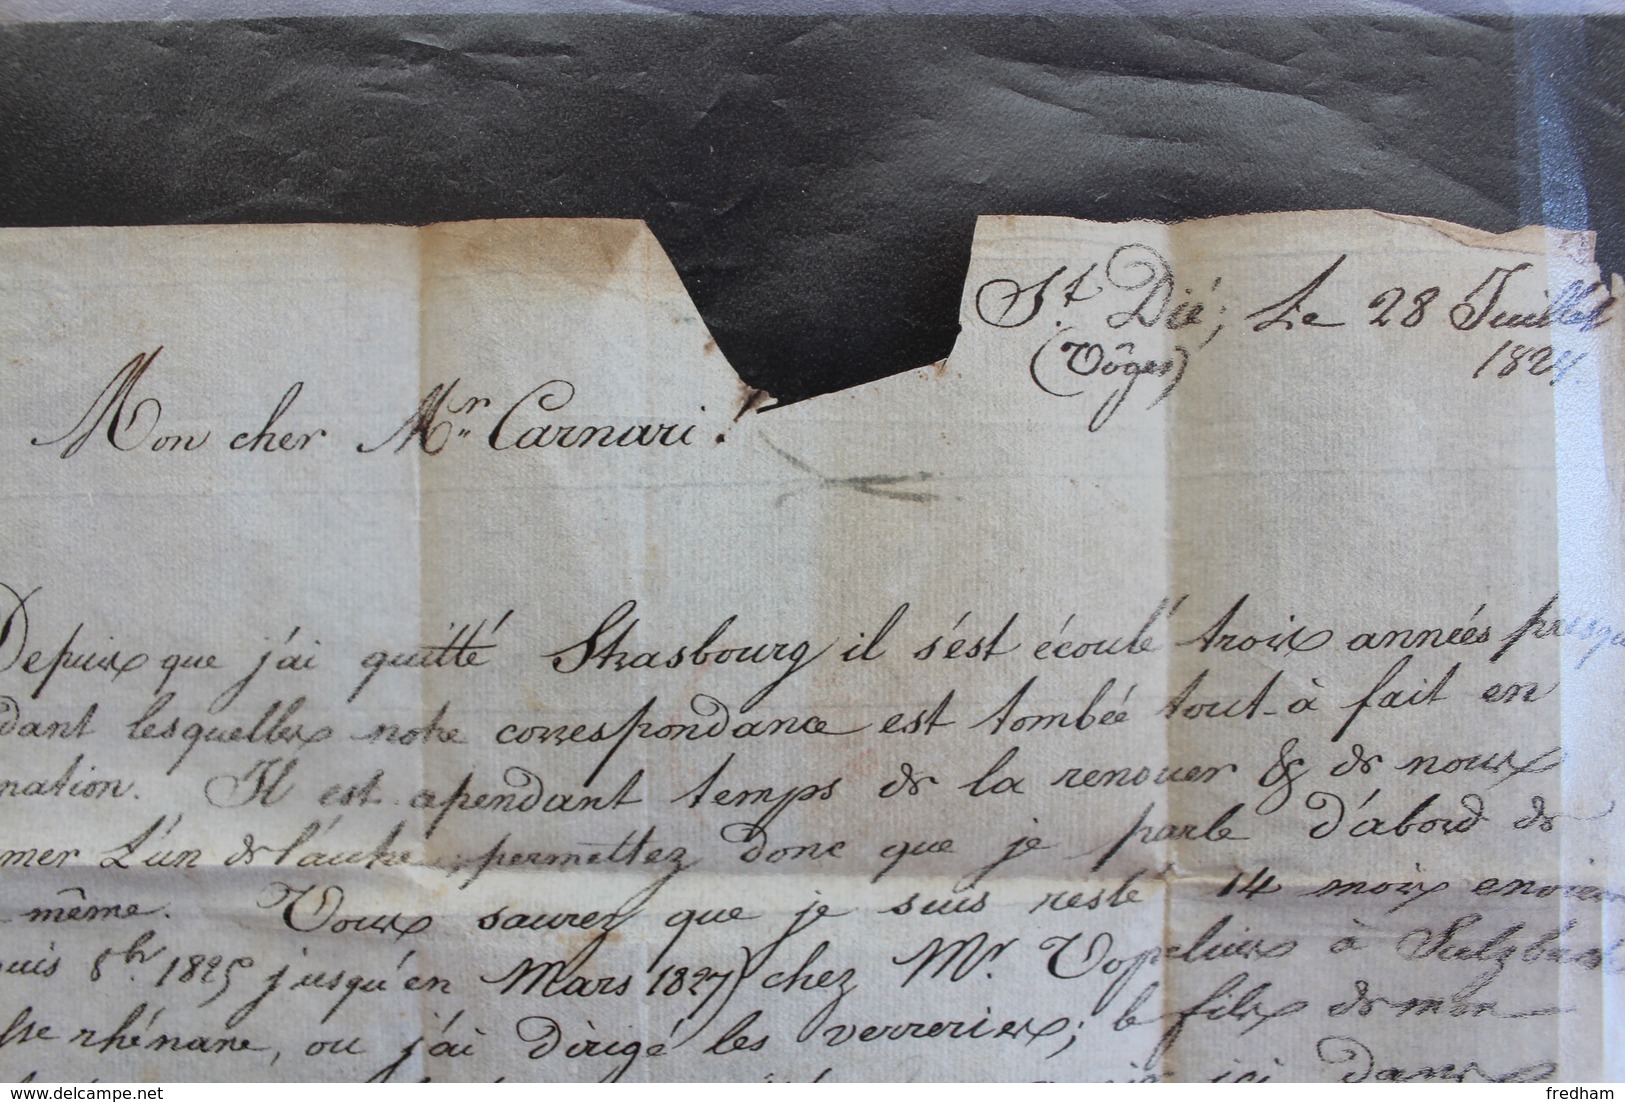 St. Dié, Le 28 Juillet
(Vôges)
Mon cher Mr. Carnari!
Depuis que j'ai quitté Strasbourg il s'est écoulé trois années presqu
dant lesquelles notre correspondance est tombée tout-à fait en
nation. Il est cependant temps de la renouer & de nous
mer L'un de l'autre; permettez donc que je parle d'abord de
même. Vous saurez que je suis resté 14 mois environ
uis 8br. 1825 jusqu'en Mars 1827) chez Mr. Vopelius à Sulzbach
sse rhénane, ou j'ai dirigé les verreries; le fils de mon
ici dans
fredham